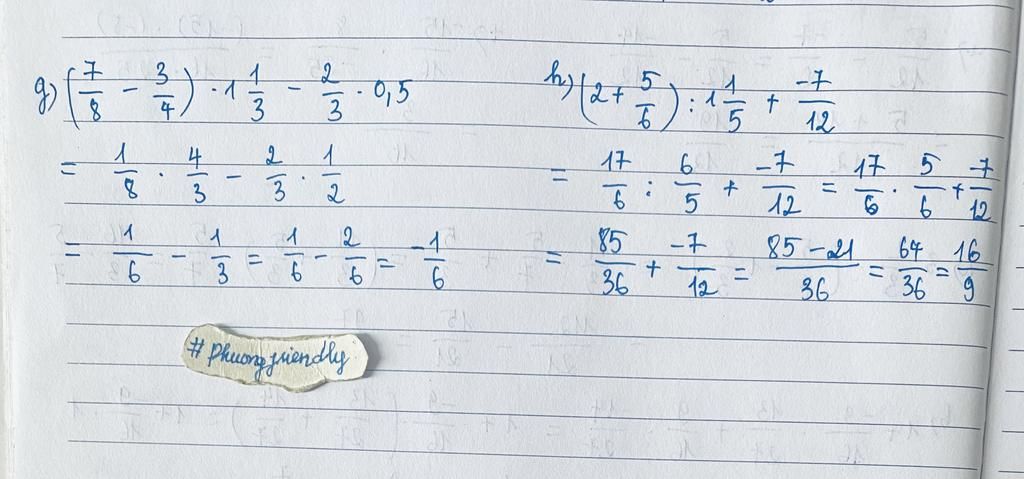 g) (7/8 - 3/4) · 1 1/3 - 2/3 · 0,5
= 1/8 · 4/3 - 2/3 · 1/2
= 1/6 - 1/3 = 1/6 - 2/6 = -1/6
h) (2 + 5/6) : 1 1/5 + -7/12
= 17/6 : 6/5 + -7/12 = 17/6 · 5/6 + -7/12
= 85/36 + -7/12 = 85-21/36 = 64/36 = 16/9
#phuongfriendly